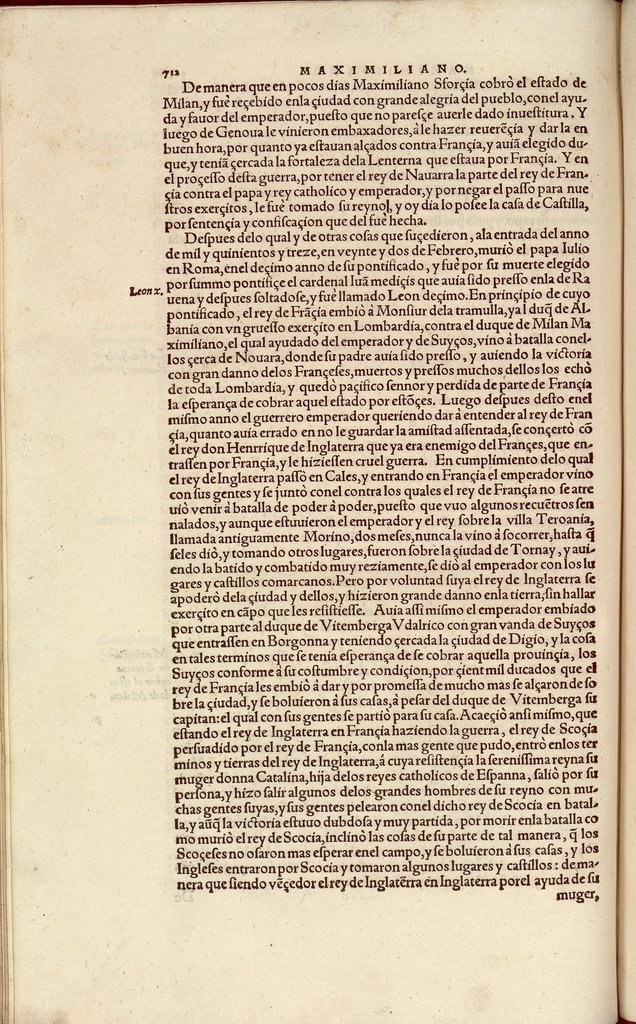 712
MAXIMILIANO.
De manera que en pocos días Maximiliano Sforçia cobrò el eſtado de
Milan, y fuè reçebido enla çiudad con grande alegria del pueblo, conel ayu-
da y fauor del emperador, pueſto que no pareſçe auerle dado inueſtitura. Y
luego de Genoua le vinieron embaxadores, à le hazer reuerẽçia y dar la en
buen hora, por quanto ya eſtauan alçados contra Françia, y auiã elegido du-
que, y teniã çercada la fortaleza dela Lenterna que eſtaua por Françia. Y en
el proçeſſo deſta guerra, por tener el rey de Nauarra la parte del rey de Fran-
çia contra el papa y rey catholico y emperador, y por negar el paſſo para nue
ſtros exerçitos, le fuè tomado ſu reyno, y oy dia lo poſee la caſa de Caſtilla,
por ſentençia y confiſcaçion que del fuè hecha.
Deſpues delo qual y de otras coſas que ſuçedieron, ala entrada del anno
de mil y quinientos y treze, en veynte y dos de Febrero, muriò el papa Iulio
en Roma, enel deçimo anno de ſu pontificado, y fuè por ſu muerte elegido
por ſummo pontifiçe el cardenal Iuã mediçis que auia ſido preſſo enla de Ra
Leon x.
uena y deſpues ſoltadoſe, y fuè llamado Leon deçimo. En prinçipio de cuyo
pontificado, el rey de Frãçia embiò à Monſiur dela tramulla, ya l duq̃ de Al-
bania con vn grueſſo exerçito en Lombardia, contra el duque de Milan Ma
ximiliano, el qual ayudado del emperador y de Suyços, vino à batalla conel-
los çerca de Nouara, donde ſu padre auia ſido preſſo, y auiendo la victoria
con gran danno delos Françeſes, muertos y preſſos muchos dellos los echò
de toda Lombardia, y quedò paçifico ſennor y perdida de parte de Françia
la eſperança de cobrar aquel eſtado por eſtõçes. Luego deſpues deſto enel
miſmo anno el guerrero emperador queriendo dar à entender al rey de Fran
çia, quanto auia errado en no le guardar la amiſtad aſſentada, ſe conçertò cõ
el rey don Henrrique de Inglaterra que ya era enemigo del Françes, que en-
traſſen por Françia, y le hizieſſen cruel guerra. En cumplimiento delo qual
el rey de Inglaterra paſſò en Cales, y entrando en Françia el emperador vino
con ſus gentes y ſe juntò conel contra los quales el rey de Françia no ſe atre
uiò venir à batalla de poder à poder, pueſto que vuo algunos recuẽtros ſen
nalados, y aunque eſtuuieron el emperador y el rey ſobre la villa Teroania,
llamada antiguamente Morino, dos meſes, nunca la vino à ſocorrer, haſta q̃
ſeles diò, y tomando otros lugares, fueron ſobre la çiudad de Tornay, y auí-
endo la batido y combatido muy reziamente, ſe diò al emperador con los lu
gares y caſtillos comarcanos. Pero por voluntad ſuya el rey de Inglaterra ſe
apoderò dela çiudad y dellos, y hizieron grande danno enla tierra, ſin hallar
exerçito en cãpo que les reſiſtieſſe. Auia aſſi miſmo el emperador embiado
por otra parte al duque de Vitemberga Vdalrico con gran vanda de Suyços
que entraſſen en Borgonna y teniendo çercada la çiudad de Digio, y la coſa
en tales terminos que ſe tenia eſperança de ſe cobrar aquella prouinçia, los
Suyços conforme à ſu coſtumbre y condiçion, por çient mil ducados que el
rey de Françia les embiò à dar y por promeſſa de mucho mas ſe alçaron de ſo
bre la çiudad, y ſe boluieron à ſus caſas, à peſar del duque de Vitemberga ſu
capitan: el qual con ſus gentes ſe partiò para ſu caſa. Acaeçiò anſi miſmo, que
eſtando el rey de Inglaterra en Françia haziendo la guerra, el rey de Scoçia
perſuadido por el rey de Françia, conla mas gente que pudo, entrò enlos ter
minos y tierras del rey de Inglaterra, á cuya reſiſtençia la ſereniſſima reyna ſu
muger donna Catalina, hija delos reyes catholicos de Eſpanna, ſaliò por ſu
perſona, y hizo ſalir algunos delos grandes hombres de ſu reyno con mu-
chas gentes ſuyas, y ſus gentes pelearon conel dicho rey de Scocia en batal-
la, y aũq̃ la victoria eſtuuo dubdoſa y muy partida, por morir enla batalla co
mo muriò el rey de Scocia, inclinò las coſas de ſu parte de tal manera, q̃ los
Scoçeſes no oſaron mas eſperar enel campo, y ſe boluieron à ſus caſas, y los
Ingleſes entraron por Scocia y tomaron algunos lugares y caſtillos: de ma-
nera que ſiendo vẽçedor el rey de Inglatẽrra en Inglaterra porel ayuda de ſu
muger,